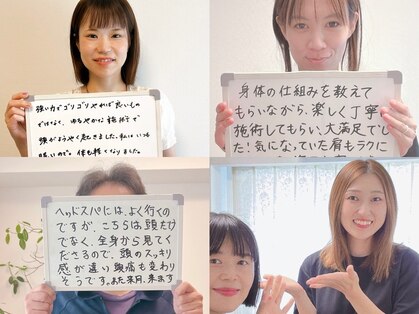 強い力でゴリゴリやれば良いもの
ではなく、ゆるやかな施術で
頭がようやく起きました。私はいつも
眠いので。体も軽くなりました。
身体の仕組みを教えて
もらいながら、楽しく丁寧
施術してもらい、大満足でし
た！気になっていた肩もラクに
ヘッドスパには、よく行くの
ですが、こちらは頭だけ
でなく、全身から見てく
ださるので、頭のスッキリ
感が違い頭痛も変わり
そうです。また来月、来ます